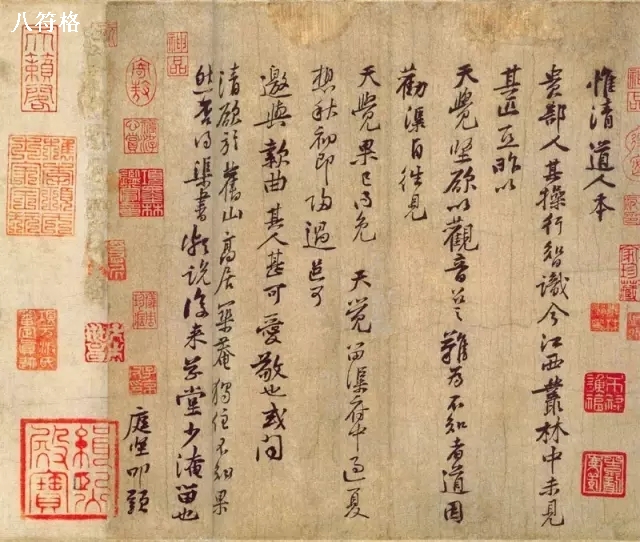 八符格
惟清道人本
貴部人其操行智識今江西叢林中未見
其匹亞昨以
天覺堅欲以觀音召之難為不知者道因
勸渠自往見
天覺果已得免 天覺留渠府中過夏
想秋初即歸過邑可
邀與款曲其人甚可愛敬也或問
清欲於舊山高居築庵獨住不知果
然否得渠書頗說後來草堂少淹留也
庭堅叩頭
天籟閣
神品
寄敖